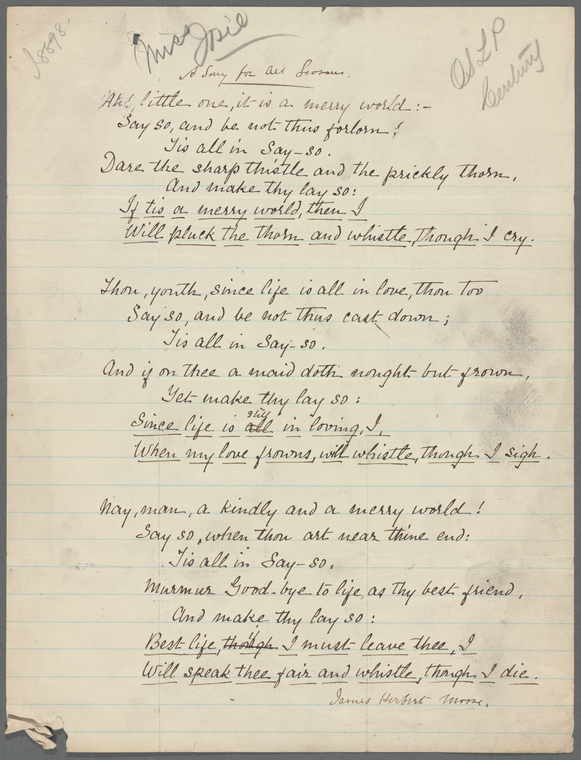 18898.
Miss Josie
O S L P
Century
A Song for All Seasons.
Ah! little one, it is a merry world:-
Say so, and be not thus forlorn!
Tis all in Say-so.
Dare the sharp thistle and the prickly thorn,
And make thy lay so:
If tis a merry world, then I
Will pluck the thorn and whistle, though I cry.
Thou, youth, since life is all in love, thou too
Say so, and be not thus cast down;
Tis all in Say-so.
And if on thee a maid doth nought but frown,
Yet make thy lay so:
still
Since life is all in loving, I,
When my love frowns, will whistle, though I sigh.
Nay, man, a kindly and a merry world!
Say so, when thou art near thine end:
Tis all in Say-so.
Murmur Good-bye to life, as thy best friend,
And make thy lay so:
Best life, though I must leave thee, I
Will speak thee fair and whistle, though I die.
James Herbert Morse.